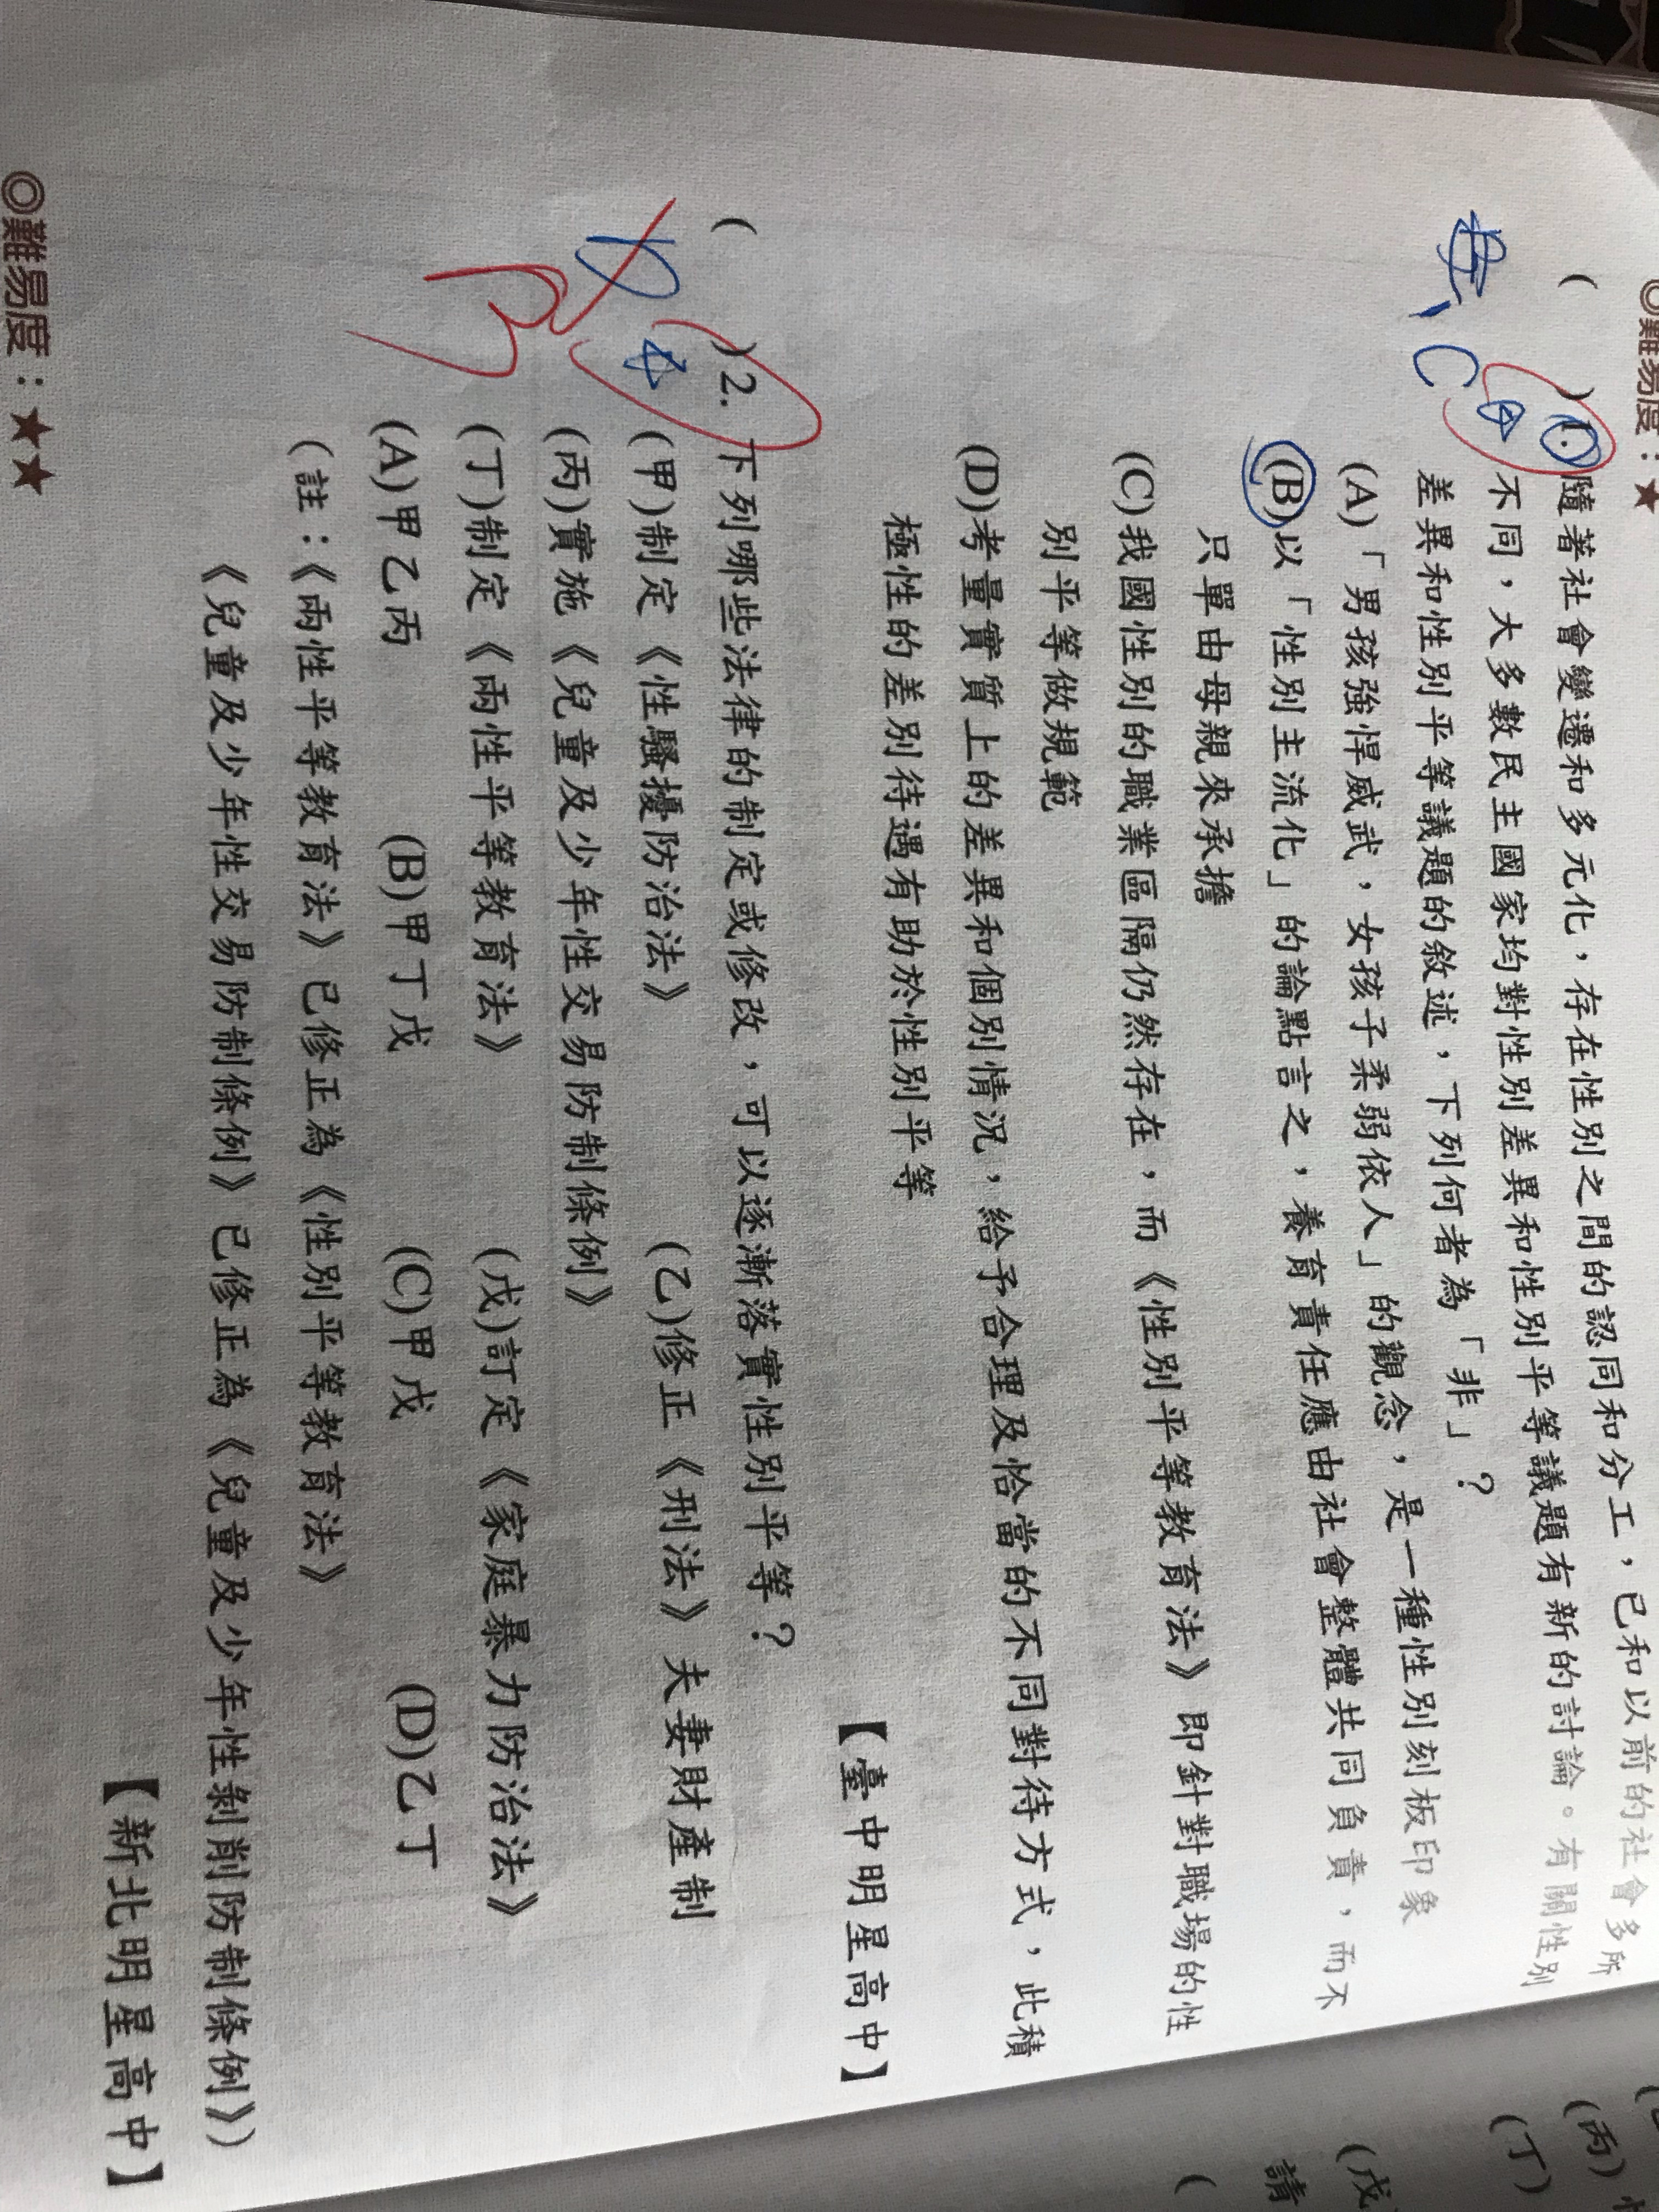 ◎難易度：★
( )1.隨著社會變遷和多元化，存在性別之間的認同和分工，已和以前的社會多所
不同，大多數民主國家均對性別差異和性別平等議題有新的討論。有關性別
差異和性別平等議題的敘述，下列何者為「非」？
C
(A)「男孩強悍威武，女孩子柔弱依人」的觀念，是一種性別刻板印象
(B)以「性別主流化」的論點言之，養育責任應由社會整體共同負責，而不
只單由母親來承擔
(C)我國性別的職業區隔仍然存在，而《性別平等教育法》即針對職場的性
別平等做規範
(D)考量實質上的差異和個別情況，給予合理及恰當的不同對待方式，此積
極性的差別待遇有助於性別平等
【臺中明星高中】
( )2.下列哪些法律的制定或修改，可以逐漸落實性別平等？
(甲)制定《性騷擾防治法》 (乙)修正《刑法》夫妻財產制
(丙)實施《兒童及少年性交易防制條例》
(丁)制定《兩性平等教育法》 (戊)訂定《家庭暴力防治法》
(A)甲乙丙 (B)甲丁戊 (C)甲戊 (D)乙丁
(註：《兩性平等教育法》已修正為《性別平等教育法》
《兒童及少年性交易防制條例》已修正為《兒童及少年性剝削防制條例》)
【新北明星高中】
◎難易度：★★
(丙)
(丁)
(戊
請
(